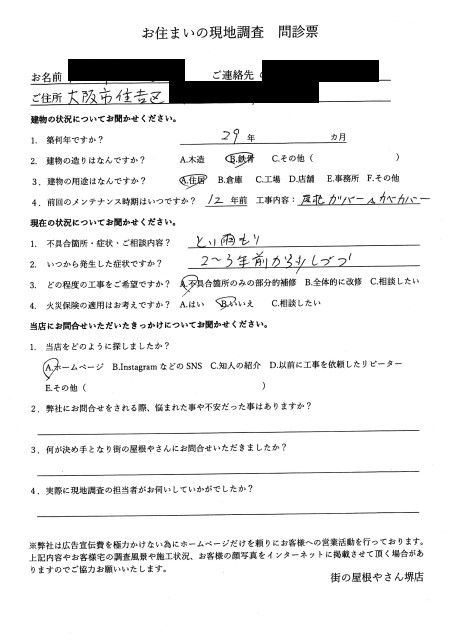 お住まいの現地調査 問診票
お名前 ご連絡先(
ご住所 大阪市住吉区
建物の状況についてお聞かせください。
1. 築何年ですか? 29 年 カ月
2. 建物の造りはなんですか? A.木造 B.鉄骨 C.その他( )
3. 建物の用途はなんですか? A.住居 B.倉庫 C.工場 D.店舗 E.事務所 F.その他
4. 前回のメンテナンス時期はいつですか? 12 年前 工事内容: 屋根カバー カベカバー
現在の状況についてお聞かせください。
1. 不具合箇所・症状・ご相談内容? とい雨もり
2. いつから発生した症状ですか? 2〜3年前から少しづつ
3. どの程度の工事をご希望ですか? A.不具合箇所のみの部分的補修 B.全体的に改修 C.相談したい
4. 火災保険の適用はお考えですか? A.はい B.いいえ C.相談したい
当店にお問合せいただいたきっかけについてお聞かせください。
1. 当店をどのように探しましたか?
A.ホームページ B.Instagram などの SNS C.知人の紹介 D.以前に工事を依頼したリピーター
E.その他( )
2. 弊社にお問合せをされる際、悩まれた事や不安だった事はありますか?
3. 何が決め手となり街の屋根やさんにお問合せいただきましたか?
4. 実際に現地調査の担当者がお伺いしていかがでしたか?
※弊社は広告宣伝費を極力かけない為にホームページだけを頼りにお客様への営業活動を行っております。
上記内容やお客様宅の調査風景や施工状況、お客様の顔写真をインターネットに掲載させて頂く場合があ
りますのでご協力お願いいたします。
街の屋根やさん堺店